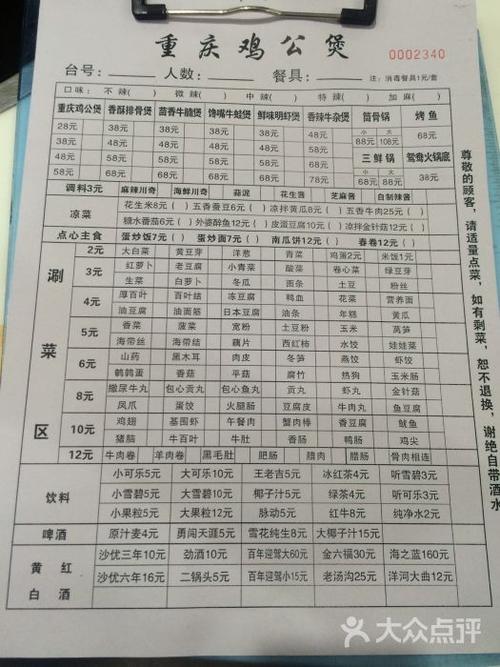 重庆鸡公煲
0002340
台号: 人数: 餐具: 注: 消毒餐具1元/套
口味: 不辣( ) 微辣( ) 中辣( ) 特辣( ) 加麻( )
重庆鸡公煲 香酥排骨煲 茴香牛腩煲 馋嘴牛蛙煲 鲜味明虾煲 香辣牛杂煲 筒骨锅 烤鱼
28元 38元 38元 38元 38元 38元 小 大 68元
38元 48元 48元 48元 48元 48元 88元 108元
48元 58元 58元 58元 58元 58元 三鲜锅 鸳鸯火锅底
58元 68元 68元 68元 68元 78元 小 大 38元
68元 88元
调料3元 麻辣川奇 海鲜川奇 蒜泥 花生酱 芝麻酱 自制辣酱
凉菜 花生米8元( ) 五香蚕豆6元( ) 凉拌黄瓜8元( ) 五香牛肉25元( )
糖水番茄6元( ) 外婆醉鱼12元( ) 皮蛋豆腐10元( ) 凉拌金针菇12元( )
点心主食 蛋炒饭7元( ) 蛋炒面7元( ) 南瓜饼12元( ) 春卷12元( )
涮菜区
2元 大白菜 黄豆芽 洋葱 青菜 鸡蛋2元 米饭1元
3元 红萝卜 老豆腐 小青菜 酸菜 卷心菜 绿豆芽
生菜 白萝卜 冬瓜 面条 土豆 粉丝
4元 厚百叶 百叶结 冻豆腐 鸭血 花菜 营养面
油豆腐 油面筋 日本豆腐 油条 年糕 黄瓜
5元 香菜 菠菜 宽粉 土豆粉 玉米 莴笋
海带丝 海带结 藕片 西红柿 水饺 娃娃菜
6元 山药 黑木耳 肉皮 冬笋 燕饺 虾饺
鹌鹑蛋 香菇 平菇 腐竹 热狗 玉米肠
8元 撒尿牛丸 包心贡丸 包心鱼丸 贡丸 虾丸 金针菇
凤爪 蛋饺 火腿肠 豆腐皮 牛肉丸 鱼豆腐
10元 鸡翅 基围虾 午餐肉 蟹肉棒 香豆腐 鱿鱼
猪脑 牛百叶 牛肚 香肠 鸭肠 鸡尖
12元 牛肉卷 羊肉卷 黑毛肚 肥肠 腊肉 腊肠 骨肉相连
饮料 小可乐5元 大可乐10元 王老吉5元 冰红茶4元 听雪碧3元
小雪碧5元 大雪碧10元 椰子汁5元 绿茶4元 听可乐3元
小果粒5元 大果粒12元 脉动5元 红牛8元 纯净水2元
啤酒 原汁麦4元 勇闯天涯5元 雪花纯生8元 大椰子汁15元
黄红白酒 沙优三年10元 劲酒10元 百年迎驾大60元 金六福30元 海之蓝160元
沙优六年16元 二锅头5元 百年迎驾小15元 老汤沟25元 洋河大曲12元
尊敬的顾客,请适量点菜,如有剩菜,恕不退换,谢绝自带酒水
大众点评